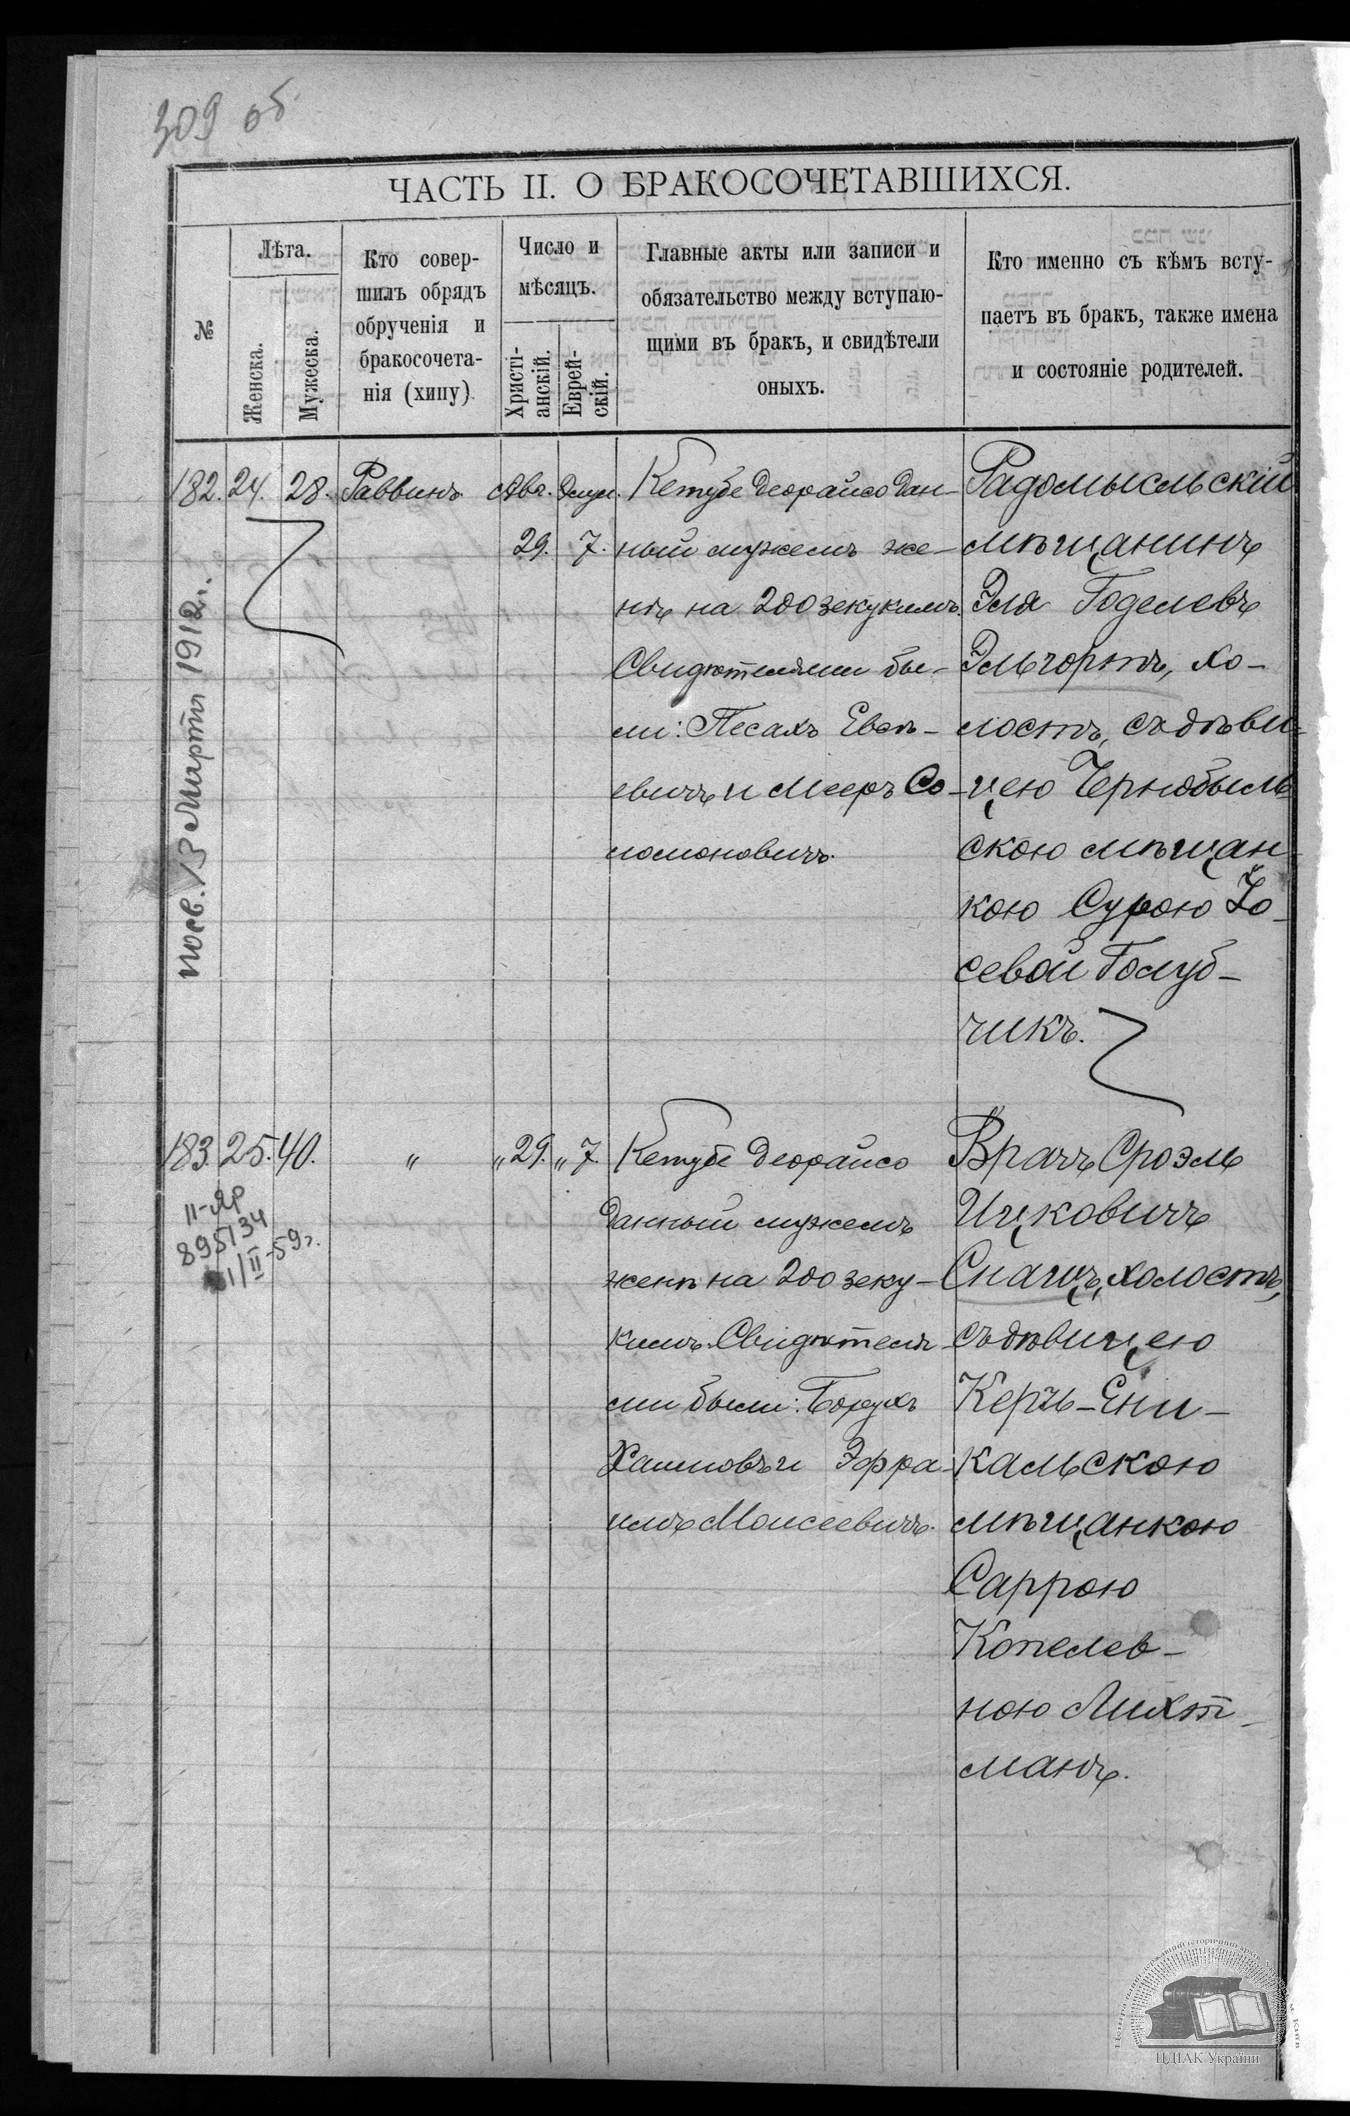 309 об.
ЧАСТЬ II. О БРАКОСОЧЕТАВШИХСЯ.
№
Лѣта.
Женска.
Мужеска.
Кто совер-
шилъ обрядъ
обрученія и
бракосочета-
нія (хипу)
Число и
мѣсяцъ.
Христі-
анскій.
Еврей-
скій.
Главные акты или записи и
обязательство между вступаю-
щими въ бракъ, и свидѣтели
оныхъ.
Кто именно съ кѣмъ всту-
паетъ въ бракъ, также имена
и состояніе родителей.
182. 24. 28. Раввинъ. Авг. Элул.
29. 7.
Кетубе деорайсо дан-
ный мужемъ же-
нѣ на 200 зекукимъ.
Свидѣтелями бы-
ли: Песахъ Евел-
евичъ и Мееръ Со-
ломоновичъ.
Радомысльскій
мѣщанинъ
Эля Годелевъ
Эльгортъ, хо-
лостъ, съ дѣви-
цею Чернобыль
скою мѣщан-
кою Сурою Іо-
севой Голуб-
чикъ.
посв. 13 Марта 1912 г.
183. 25. 40. " " 29. " 7.
Кетубе деорайсо
данный мужемъ
женѣ на 200 зеку-
кимъ. Свидѣтеля-
ми были: Борухъ
Хаимовъ и Эфра-
имъ Моисеевичъ.
Врачъ Сроэль
Ицковичъ
Спащъ, холостъ,
съ дѣвицею
Керчь-Ени-
кальскою
мѣщанкою
Саррою
Копелев-
ною Лихт-
манъ.
II-ЯР
895134
1/II-59г.
ЦДІАК України